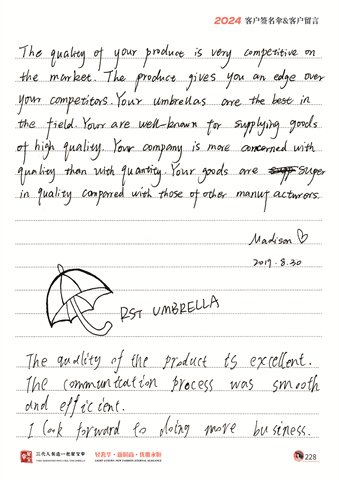 2024 客户签名伞&客户留言
The quality of your product is very competitive on
the market. The product gives you an edge over
your competitors. Your umbrellas are the best in
the field. Your are well-known for supplying goods
of high quality. Your company is more concerned with
quality than with quantity. Your goods are super
in quality compared with those of other manufacturers.
Madison ♡
2019.8.30
RST UMBRELLA
The quality of the product is excellent.
The communication process was smooth
and efficient.
I look forward to doing more business.
三代人制造一把好宝伞
轻奢华·新时尚·优雅永恒
228